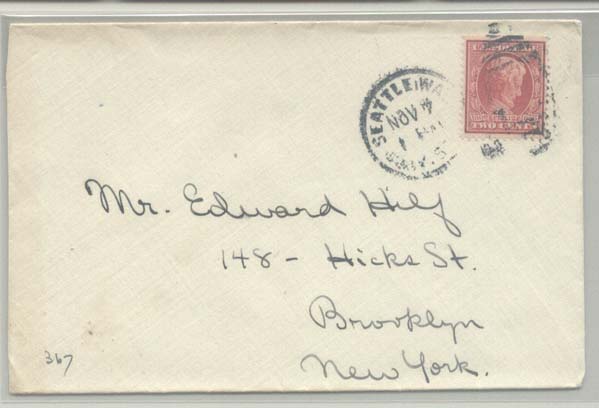 SEATTLE, WA
NOV 4
Mr. Edward Hilf
148 - Hicks St.
Brooklyn
New York.
367